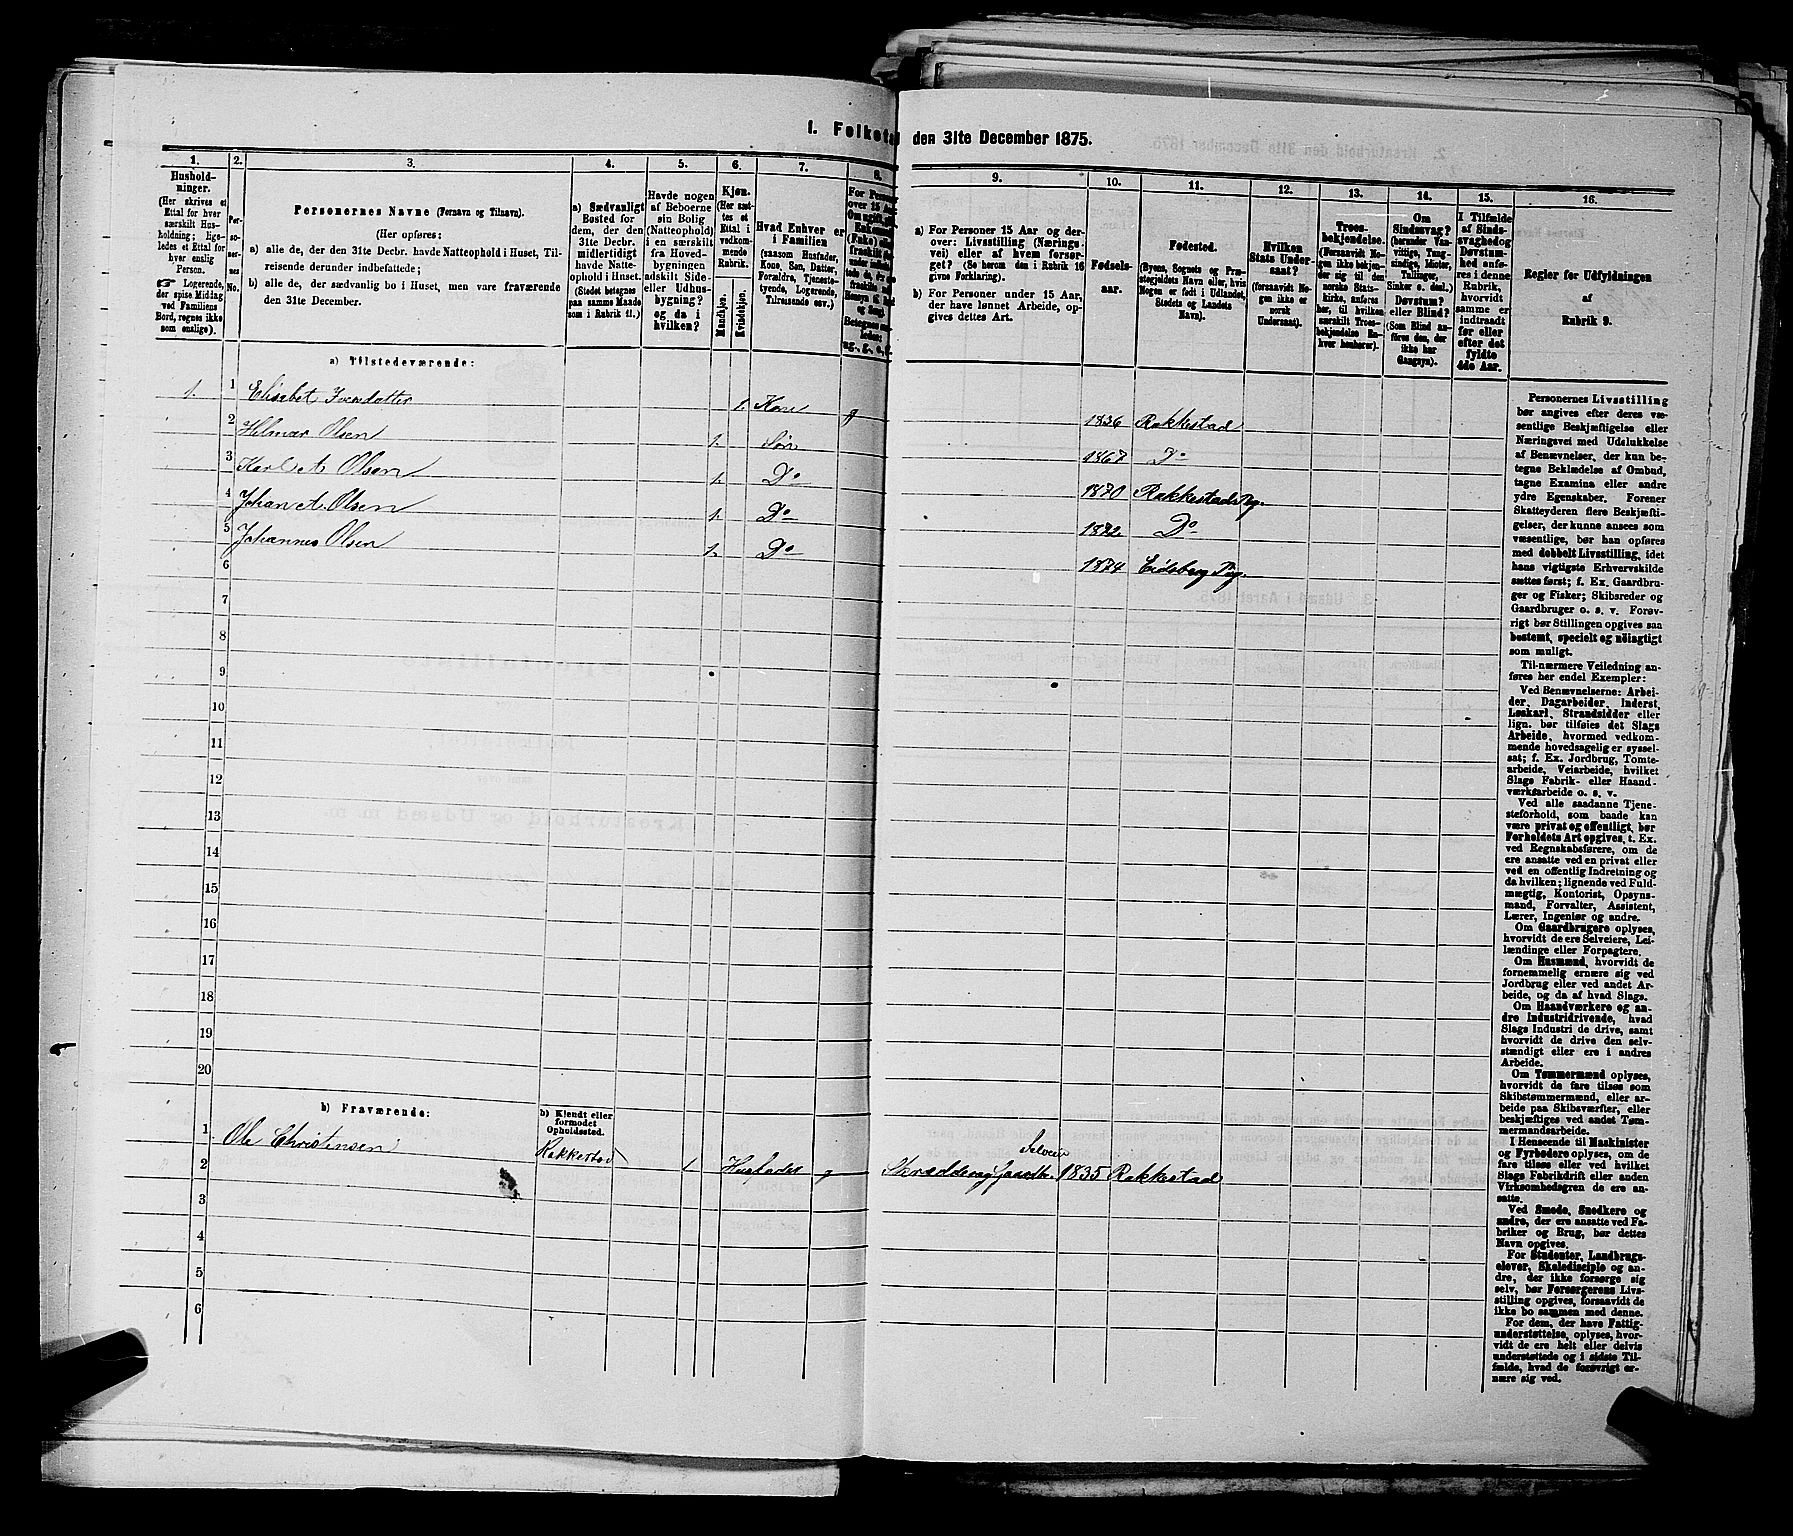 1. Folketal den 31te December 1875.
1. 2. 3. 4. 5. 6. 7. 8. 9. 10. 11. 12. 13. 14. 15. 16.
Husholdninger.
(Her skrives et Ettal for hver særskilt Husholdning; ligeledes et Ettal for hver enslig Person.
☞ Logerende, der spise Middag ved Familiens Bord, regnes ikke som enslige).
Personernes No.
Personernes Navne (Fornavn og Tilnavn).
(Her opføres:
a) alle de, der den 31te Decbr. havde Natteophold i Huset, Tilreisende derunder indbefattede;
b) alle de, der sædvanlig bo i Huset, men vare fraværende den 31te December.
a) Sædvanligt Bosted for dem, der den 31te Decbr. midlertidigt havde Natteophold i Huset. (Stedet betegnes paa samme Maade som i Rubrik 11.)
Havde nogen af Beboerne sin Bolig (Natteophold) i en særskilt fra Hovedbygningen adskilt Side- eller Udhusbygning? og da i hvilken?
Kjøn. (Her sættes et Ettal i vedkommende Rubrik.
Mandkjøn. Kvindekjøn.
Hvad Enhver er i Familien (saasom Husfader, Kone, Søn, Datter, Forældre, Tjenestetyende, Logerende, Tilreisende osv.)
a) For Personer 15 Aar og derover: Livsstilling (Næringsvei) eller af hvem forsørget? (Se herom den i Rubrik 16 givne Forklaring).
b) For Personer under 15 Aar, der have lønnet Arbeide, opgives dettes Art.
Fødselsaar.
Fødested.
(Byens, Sognets og Præstegjeldets Navn eller, hvis Nogen er født i Udlandet, Stedets og Landets Navn).
Hvilken Stats Undersaat?
(forsaavidt Nogen ikke er norsk Undersaat).
Troesbekjendelse.
(Forsaavidt Nogen ikke bekjender sig til den norske Statskirke, anføres her, til hvilken særskilt Troesbekjendelse Enhver henhører).
Om Sindssvag? (herunder Vanvittige, Tungsindige, Idioter, Tullinger, Sinker o. desl.) Døvstum? eller Blind? (Som Blind anføres den, der ikke har Gangsyn).
I Tilfælde af Sindssvaghed og Døvstumhed anføres i denne Rubrik, hvorvidt samme er indtraadt før eller efter det fyldte 4de Aar.
Regler for Udfyldningen
af
Rubrik 9.
a) Tilstedeværende:
1. 1 Elisabet Iversdatter 1. Kone g 1836 Rakkestad
2 Helmer Olsen 1. Søn 1867 Do
3 Karl A Olsen 1. Do 1870 Rakkestad Pg.
4 Johan A. Olsen 1. Do 1872 Do
5 Johannes Olsen 1. Do 1874 Eidsberg Pg.
6
7
8
9
10
11
12
13
14
15
16
17
18
19
20
b) Fraværende:
b) Kjendt eller formodet Opholdssted.
1 Ole Christensen Rakkestad 1. Husfader g Skrædder og Gaardbr. Selveier 1835 Rakkestad
2
3
4
5
6
Personernes Livsstilling
bør angives efter deres væ-
sentlige Beskjæftigelse eller
Næringsvei med Udelukkelse
af Benævnelser, der kun be-
tegne Beklædelse af Ombud,
tagne Examina eller andre
ydre Egenskaber. Forener
Skatteyderen flere Beskjæfti-
gelser, der kunne ansees som
væsentlige, bør han opføres
med dobbelt Livsstilling, idet
hans vigtigste Erhvervskilde
sættes først; f. Ex. Gaardbru-
ger og Fisker; Skibsreder og
Gaardbruger o. s. v. Forøv-
rigt bør Stillingen opgives saa
bestemt, specielt og nøiagtigt
som muligt.
Til nærmere Veiledning an-
føres her endel Exempler:
Ved Benævnelserne: Arbei-
der, Dagarbeider, Inderst,
Løskarl, Strandsidder eller
lign. bør tilføies det Slags
Arbeide, hvormed vedkom-
mende hovedsagelig er syssel-
sat; f. Ex. Jordbrug, Tomte-
arbeide, Veiarbeide, hvilket
Slags Fabrik- eller Haand-
værksarbeide o. s. v.
Ved alle saadanne Tjene-
steforhold, som baade kan
være privat og offentligt, bør
Forholdets Art opgives, t. Ex.
ved Regnskabsførere, om de
ere ansatte ved en privat eller
ved en offentlig Indretning og
da hvilken; lignende ved Fuld-
mægtig, Kontorist, Opsyns-
mand, Forvalter, Assistent,
Lærer, Ingeniør og andre.
Om Gaardbrugere oplyses,
hvorvidt de ere Selveiere, Lei-
lændinge eller Forpagtere.
Om Husmænd, hvorvidt de
fornemmelig ernære sig ved
Jordbrug eller ved andet Ar-
beide, og da af hvad Slags.
Om Haandværkere og an-
dre Industridrivende, hvad
Slags Industri de drive, samt
hvorvidt de drive den selv-
stændigt eller ere i andres
Arbeide.
Om Tømmermænd oplyses,
hvorvidt de fare tilsøs som
Skibstømmermænd, eller ar-
beide paa Skibsværfter, eller
beskjæftiges ved andet Tøm-
mermandsarbeide.
I Henseende til Maskinister
og Fyrbødere oplyses, om de
fare tilsøs eller ved hvilket
Slags Fabrikdrift eller anden
Virksomhedsgren de ere an-
satte.
Ved Smede, Snedkere og
andre, der ere ansatte ved Fa-
briker og Brug, bør dettes
Navn opgives.
For Studenter, Landbrugs-
elever, Skoledisciple og an-
dre, der ikke forsørge sig
selv, bør Forsørgerens Livs-
stilling opgives, forsaavidt de
ikke bo sammen med denne.
For dem, der have Fattig-
understøttelse, oplyses, hvor-
vidt de ere helt eller delvis
understøttede og i sidste Til-
fælde, hvad de forøvrigt er-
nære sig ved.